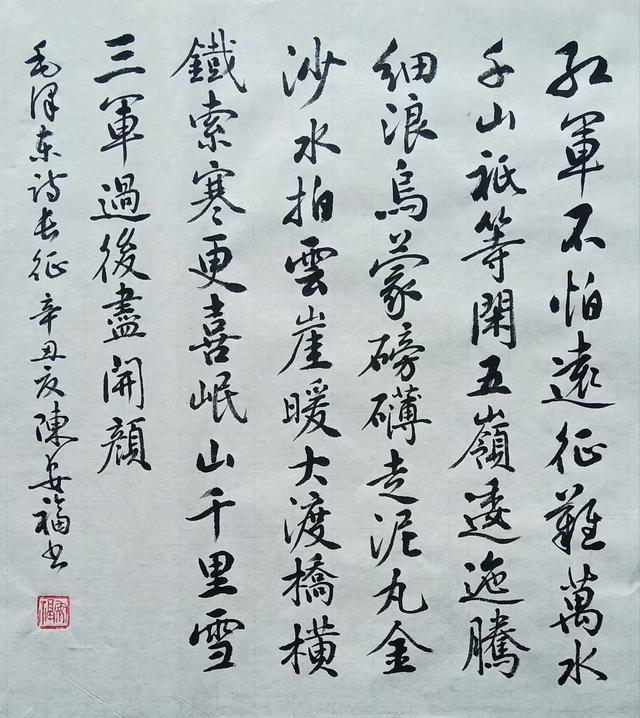 紅軍不怕遠征難萬水
千山祇等閑五嶺逶迤騰
細浪烏蒙磅礴走泥丸金
沙水拍雲崖暖大渡橋横
鐵索寒更喜岷山千里雪
三軍過後盡開顔
毛澤東詩長征辛丑夏陳安福书